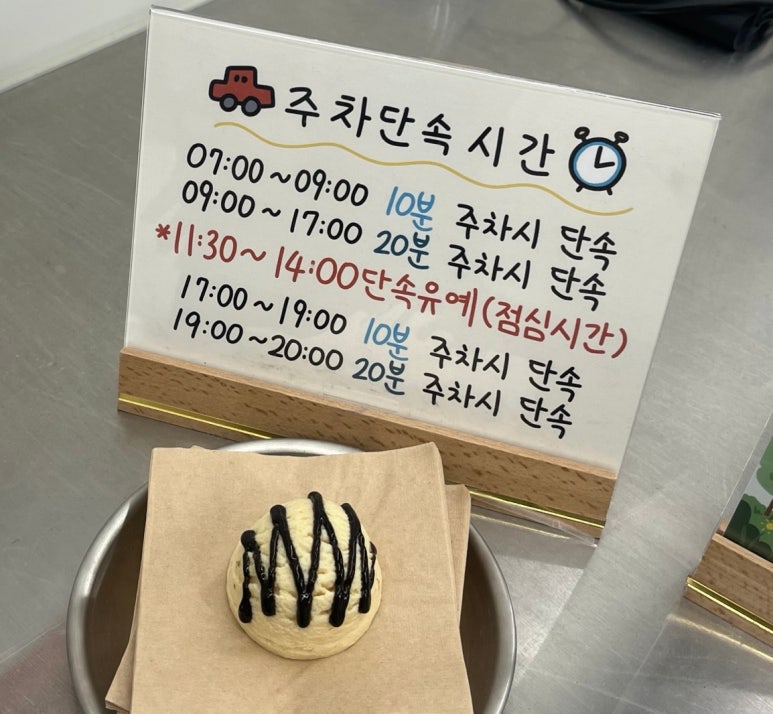 주차단속시간
07:00~09:00 10분 주차시 단속
09:00~17:00 20분 주차시 단속
*11:30~14:00단속유예(점심시간)
17:00~19:00 10분 주차시 단속
19:00~20:00 20분 주차시 단속